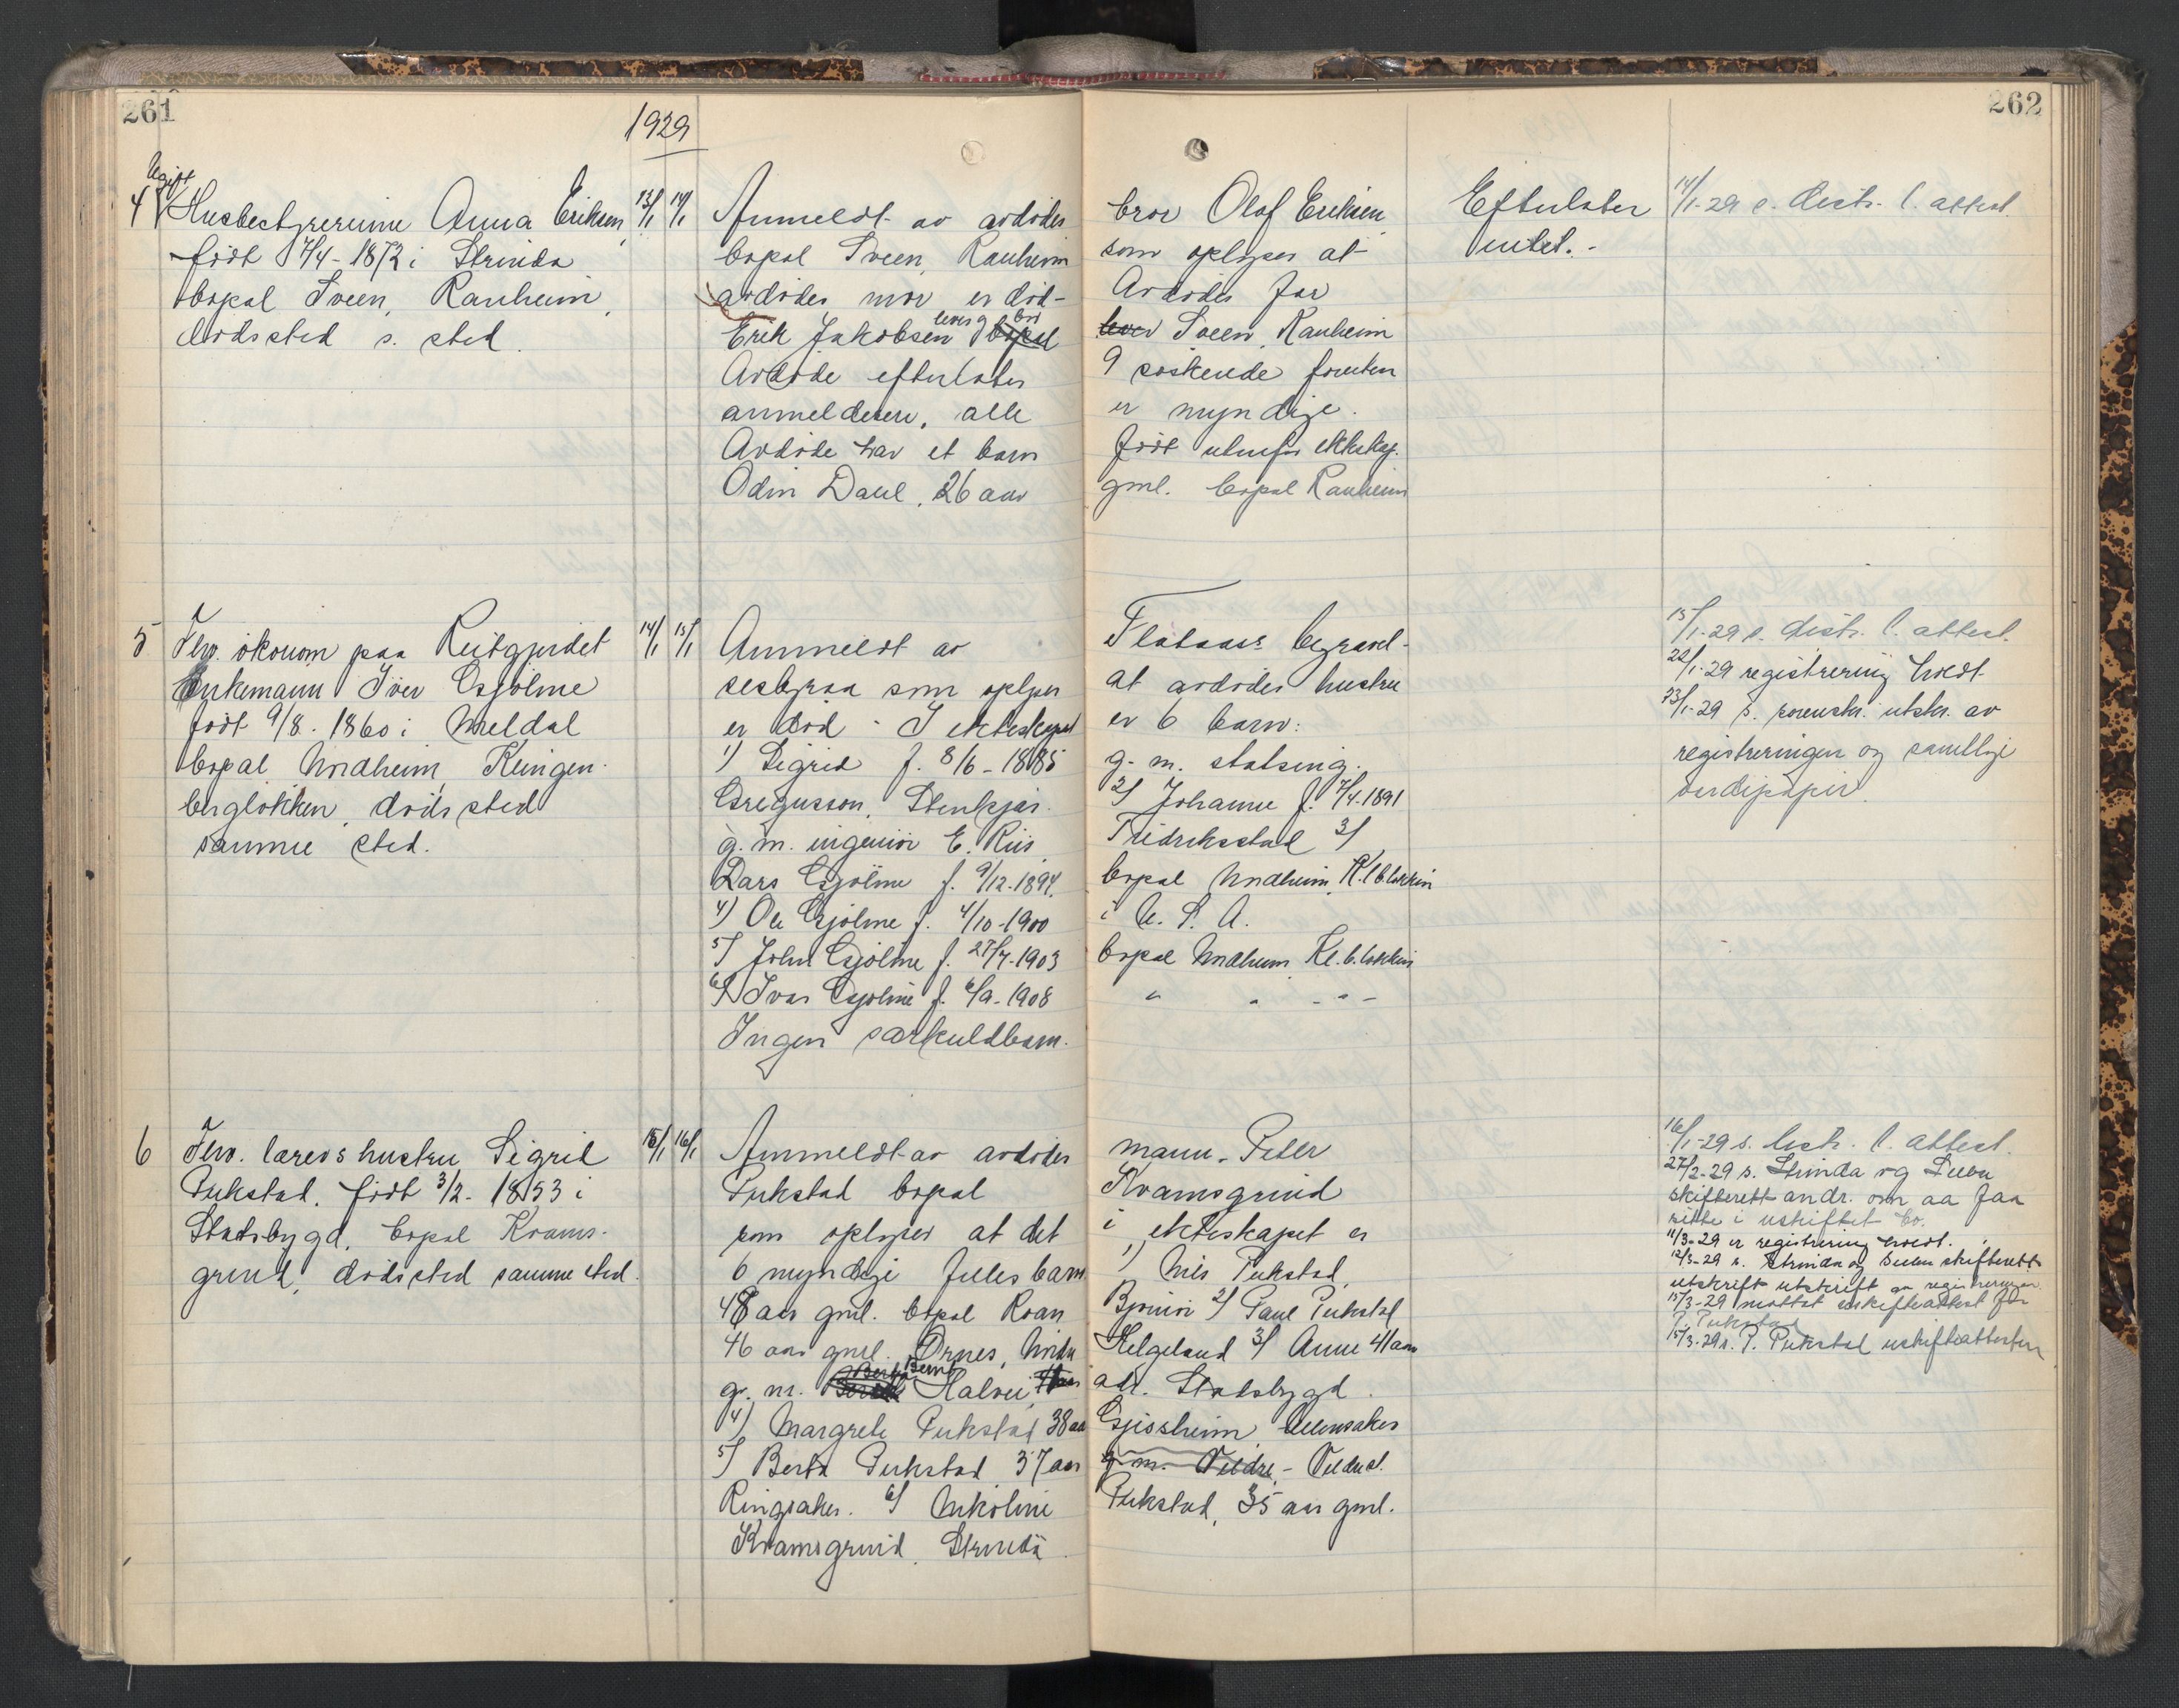 261
262
1929
Ugift
4 Husbestyrerinne Anna Eriksen 13/1 14/1 Anmeldt av avdødes bror Olaf Eriksen Efterlater 14/1-29 s. distr. l. attest.
født 7/4-1872 i Strinda bopæl Sveen, Ranheim som oplyser at intet.-
bopæl Sveen, Ranheim, avdødes mor er død- Avdødes far
dødssted s. sted. Erik Jakobsen lever og bor Sveen, Ranheim
Avdøde efterlater 9 søskende foruten
anmelderen, alle er myndige.
Avdøde har et barn født utenfor ekteskap.
Odin Dahl, 26 aar gml. bopæl Ranheim
5 Fhv. økonom paa Reitgjerdet 14/1 15/1 Anmeldt av Flataas begravel- 15/1-29 s. distr. l. attest.
Enkemann Iver Gjølme sesbyraa som oplyser at avdødes hustru 22/1-29 registrering holdt
født 9/8-1860 i Meldal er død - I ekteskapet er 6 barn: 23/1-29 s. utskr. av
bopæl Nordheim, Klingen- 1) Sigrid f. 8/6-1885 g. m. statsing. registreringen og samtlige
bergløkken, dødssted Gregusson, Stenkjær. 2) Johanne f. 7/4-1891 verdipapir.
samme sted. g. m. ingeniør E. Riis, Fredrikstad 3)
Lars Gjølme f. 9/12-1894. bopæl Nordheim, Kl.b.løkken
4) Ole Gjølme f. 4/10-1900 i U. S. A.
5) John Gjølme f. 27/7-1903 bopæl Nordheim Kl.b.løkken
6) Ivar Gjølme f. 6/9-1908 " " - " -
Ingen særkuldbarn.
6 Fhv. lærers hustru Sigrid 15/1 16/1 Anmeldt av avdødes mann, Peter 16/1-29 s. distr. l. attest.
Pukstad, født 3/2-1853 i Pukstad bopæl Kvamsgrind 27/2-29 s. Strinda og Selbu
Stadsbygd, bopæl Kvams- som oplyser at det i ekteskapet er skifterett andr. om aa faa
grind, dødssted samme sted. 6 myndige felles barn 1) Nils Pukstad, sitte i uskiftet bo.
48 aar gml. bopæl Roan Bjørnør 2) Paul Pukstad 11/3-29 er registrering holdt.
46 aar gml. Dønes, Nordre Helgeland 3) Anne 41 aar 12/3-29 s. Strinda og Selbu skifterett
g. m. Bernt Halvei, adr. Stadsbygd. utskrift utskrift av registreringen
4) Margrete Pukstad 38 aar Gjissheim Ullensaker 15/3-29 mottat uskifteattest for
P. Pukstad
5) Berta Pukstad 37 aar g. m. Veldre - Veldre st. 15/3-29 s. P. Pukstad uskifteattesten
Ringsaker. 6) Nikoline Pukstad, 35 aar gml.
Kvamsgrind, Strinda.